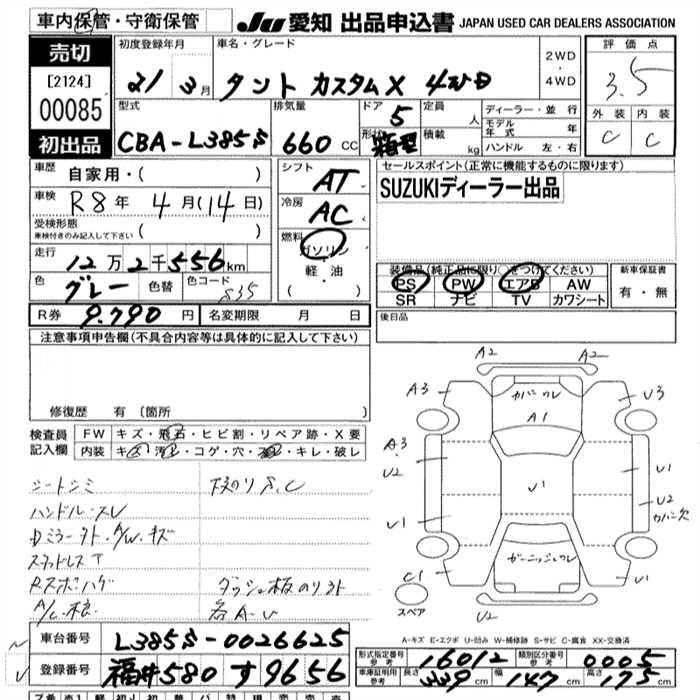 車内保管・守衛保管 JU 愛知 出品申込書 JAPAN USED CAR DEALERS ASSOCIATION
売切
[2124]
00085
初出品
初度登録年月 車名・グレード 2WD ・ 4WD
21 3月 タント カスタムX 4WD
型式 排気量 ドア 形状 定員 人 積載 kg
CBA-L385S 660 CC 5 箱型
ディーラー・並行
モデル年式 年
ハンドル 左・右
評価点
3.5
外装 内装
C C
車歴 自家用・( )
車検 R8年 4月(14日)
受検形態 ( )
車検付きのみ記入して下さい
走行 12万2千556km
色 グレー 色替 色コード S35
R券 9.790円 名変期限 月 日
シフト AT
冷房 AC
燃料 ガソリン ・ 軽油 ( ・ )
セールスポイント(正常に機能するものに限ります)
SUZUKIディーラー出品
装備品(純正品に限り○をつけてください) 新車保証書
PS PW エアB AW 有・無
SR ナビ TV カワシート
後日品
注意事項申告欄(不具合内容等は具体的に記入して下さい)
修復歴 有 (箇所 )
検査員記入欄 FW キズ・飛石・ヒビ割・リペア跡・X要
内装 キズ・汚れ・コゲ・穴・スレ・キレ・破レ
シートシミ
ハンドルスレ
Dミラークト、A/W、キズ
スタッドレスT
Rスポハゲ ダッシュ板のりヨト
各A・U
A2 A2
A3 U3
カバンワレ
A1
A3
U2
U1
U1
U2
カバン欠
U1
ガーニッシュワレ
C1
U1
スペア
U2
A-キズ E-エクボ U-凹み W-補修跡 S-サビ C-腐食 XX-交換済
車台番号 L385S-0026625
登録番号 福井580 す 9656
形式指定番号 参考 16012 類別区分番号 参考 0005
車庫証明用 参考 長さ 339cm 幅 147cm 高さ 175cm